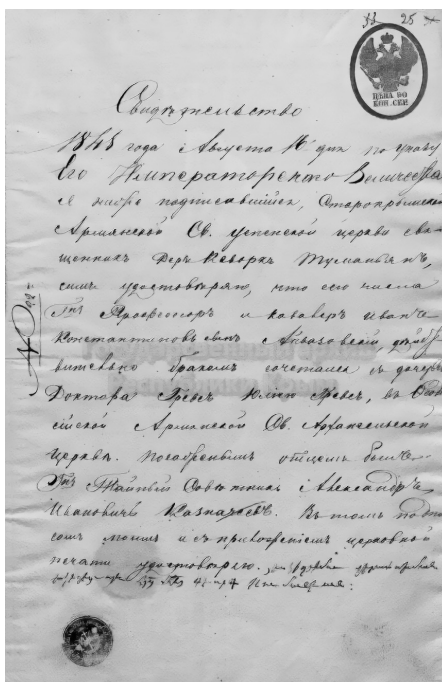 33 25
ЦѢНА 90
КОП. СЕР.
Свидѣтельство
184 года Августа 16 дня по указу
Его Императорскаго Величества
я ниже подписавшійся, Старокрымской
Армянской Св. Успенской церкви свя-
щенникъ Деръ Кеворкъ Туманьянъ,
симъ удостовѣряю, что сего числа
Гнъ Профессоръ и кавалеръ Иванъ
Константиновъ сынъ Айвазовскій, дѣйст-
вительно бракомъ сочетался съ дочерью
Государственный архив
Республики Крым
Доктора Гревсъ Юліею Гревсъ, въ Ѳеодо-
сійской Армянской Св. Архангельской
Церкви. Посаженымъ отцемъ былъ
Гнъ Тайный Совѣтникъ Александръ
Ивановичъ Казначѣевъ. Въ томъ подпи-
сомъ моимъ и съ приложеніемъ церковной
печати удостовѣряю.